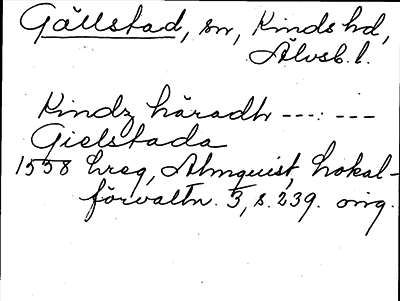 Gällstad, sn, Kinds hd,
Älvsb. l.
Kindz häradh ---:---
Gielstada
1558 hreg, Almquist, Lokal-
förvaltn. 3, s. 239. orig.